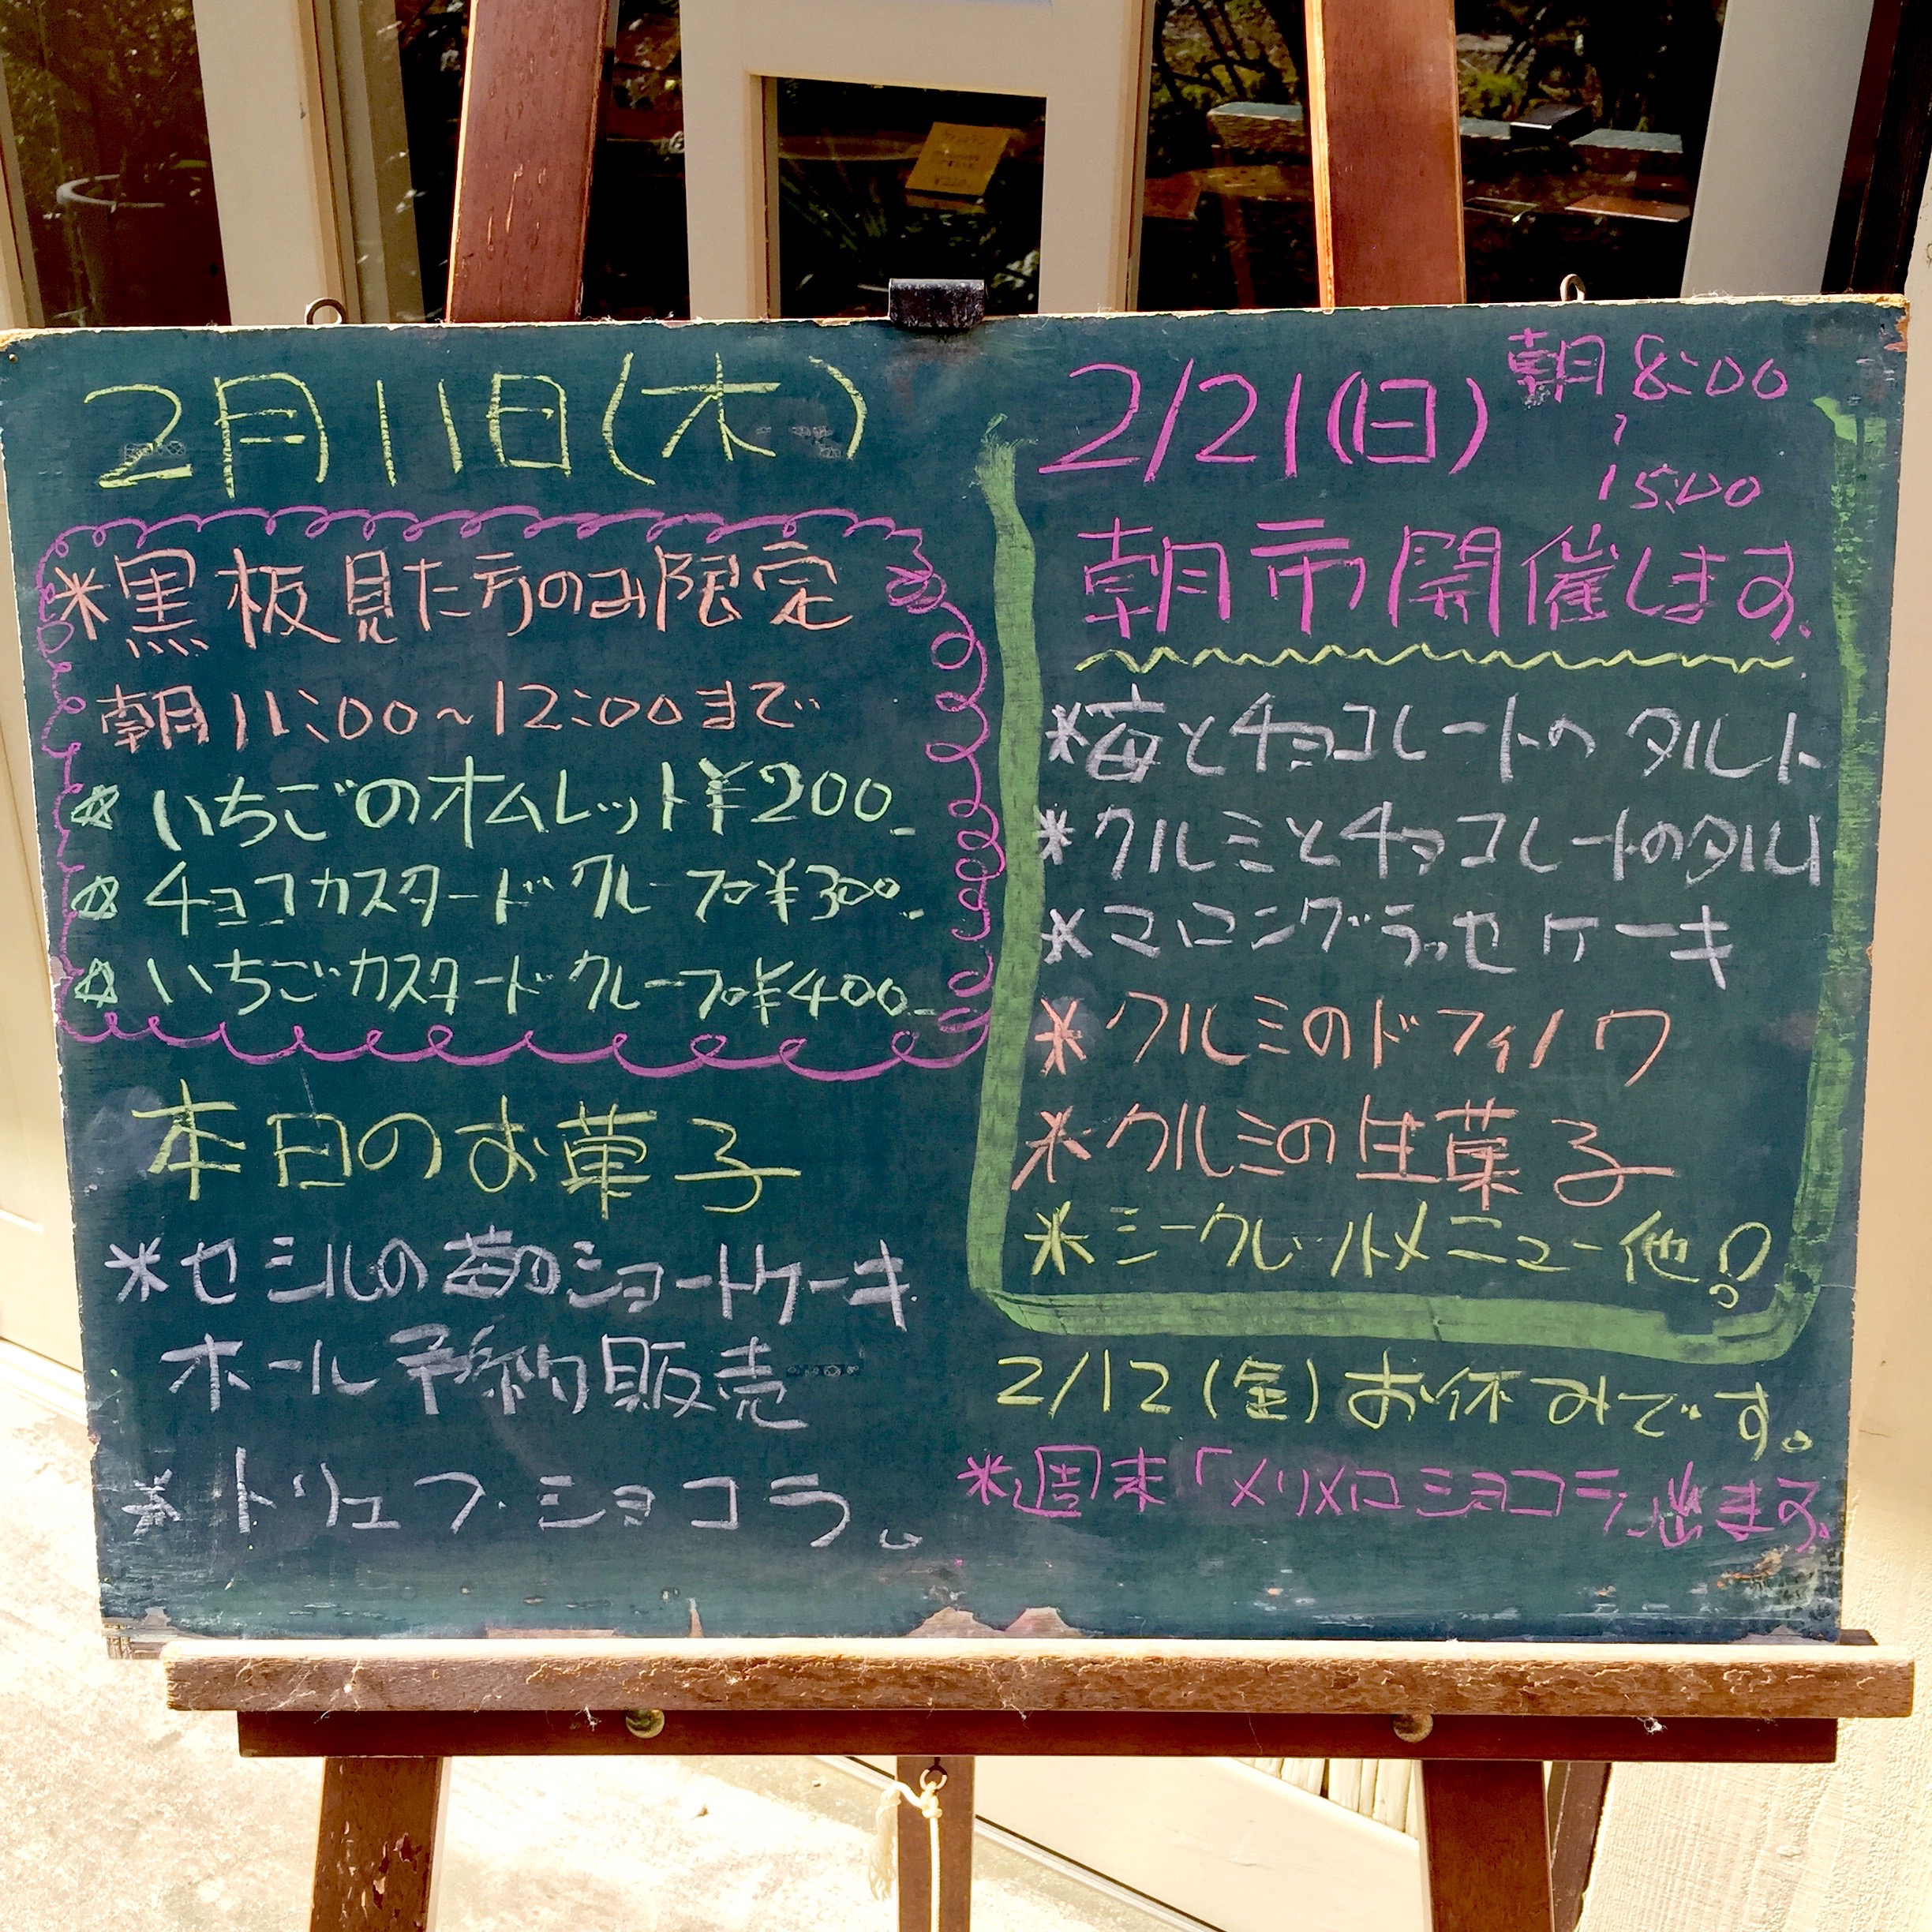 2月11日(木)
*黒板見た方のみ限定
朝11:00~12:00まで
☆いちごのオムレット¥200-
☆チョコカスタードクループ¥300-
☆いちごカスタードクループ¥400-
本日のお菓子
*セシルの苺のショートケーキ
ホール予約販売……
*トリュフ・ショコラ。
2/21(日) 朝8:00
~
15:00
朝市開催します。
*苺とチョコレートのタルト
*クルミとチョコレートのタルト
*マロングラッセケーキ
*クルミのドフィノワ
*クルミの生菓子
*シークレットメニュー他!
2/12(金)お休みです。
*週末「メリメロショコラ」出ます。